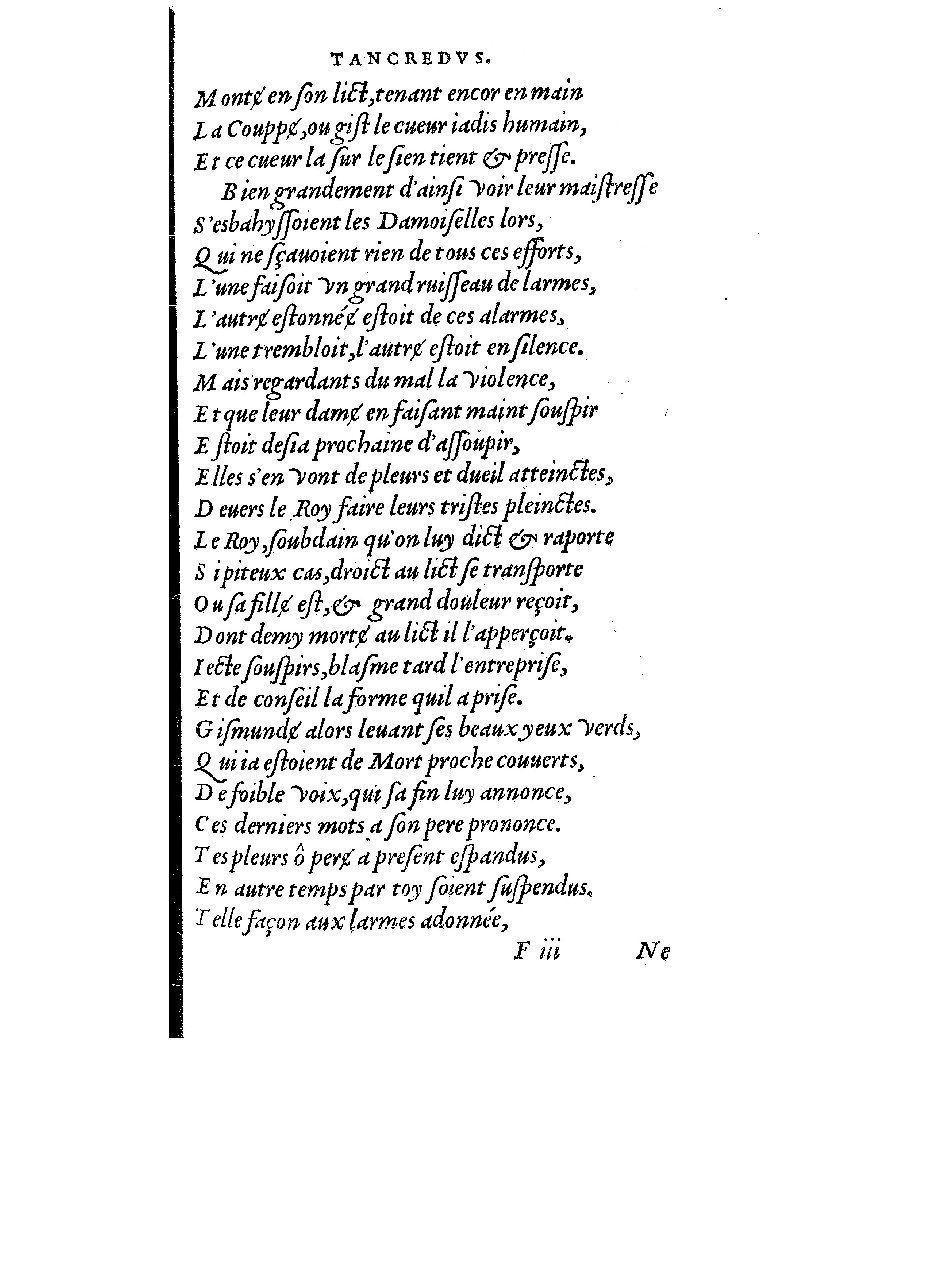 TANCREDVS.
Montɇ en ſon lict, tenant encor en main
La Couppɇ, ou giſt le cueur iadis humain,
Et ce cueur la ſur le ſien tient & preſſe.
Bien grandement d'ainſi voir leur maiſtreſſe
S'esbahyſſoient les Damoiſelles lors,
Qui ne ſçauoient rien de tous ces efforts,
L'une faiſoit vn grand ruiſſeau de larmes,
L'autrɇ eſtonnéɇ eſtoit de ces alarmes,
L'une trembloit, l'autrɇ eſtoit en ſilence.
Mais regardants du mal la violence,
Et que leur damɇ en faiſant maint ſouſpir
Eſtoit deſia prochaine d'aſſoupir,
Elles s'en vont de pleurs et dueil atteinctes,
Deuers le Roy faire leurs triſtes pleinctes.
Le Roy, ſoubdain qu'on luy dict & raporte
Si piteux cas, droict au lict ſe tranſporte
Ou ſa fillɇ eſt, & grand douleur reçoit,
Dont demy mortɇ au lict il l'apperçoit.
Iecte ſouſpirs, blaſme tard l'entrepriſe,
Et de conſeil la forme quil a priſe.
Giſmundɇ alors leuant ſes beaux yeux verds,
Qui ia eſtoient de Mort proche couuerts,
De foible voix, qui ſa fin luy annonce,
Ces derniers mots a ſon pere prononce.
Tes pleurs ô perɇ a preſent eſpandus,
En autre temps par toy ſoient ſuſpendus.
Telle façon aux larmes adonnée,
F iii Ne